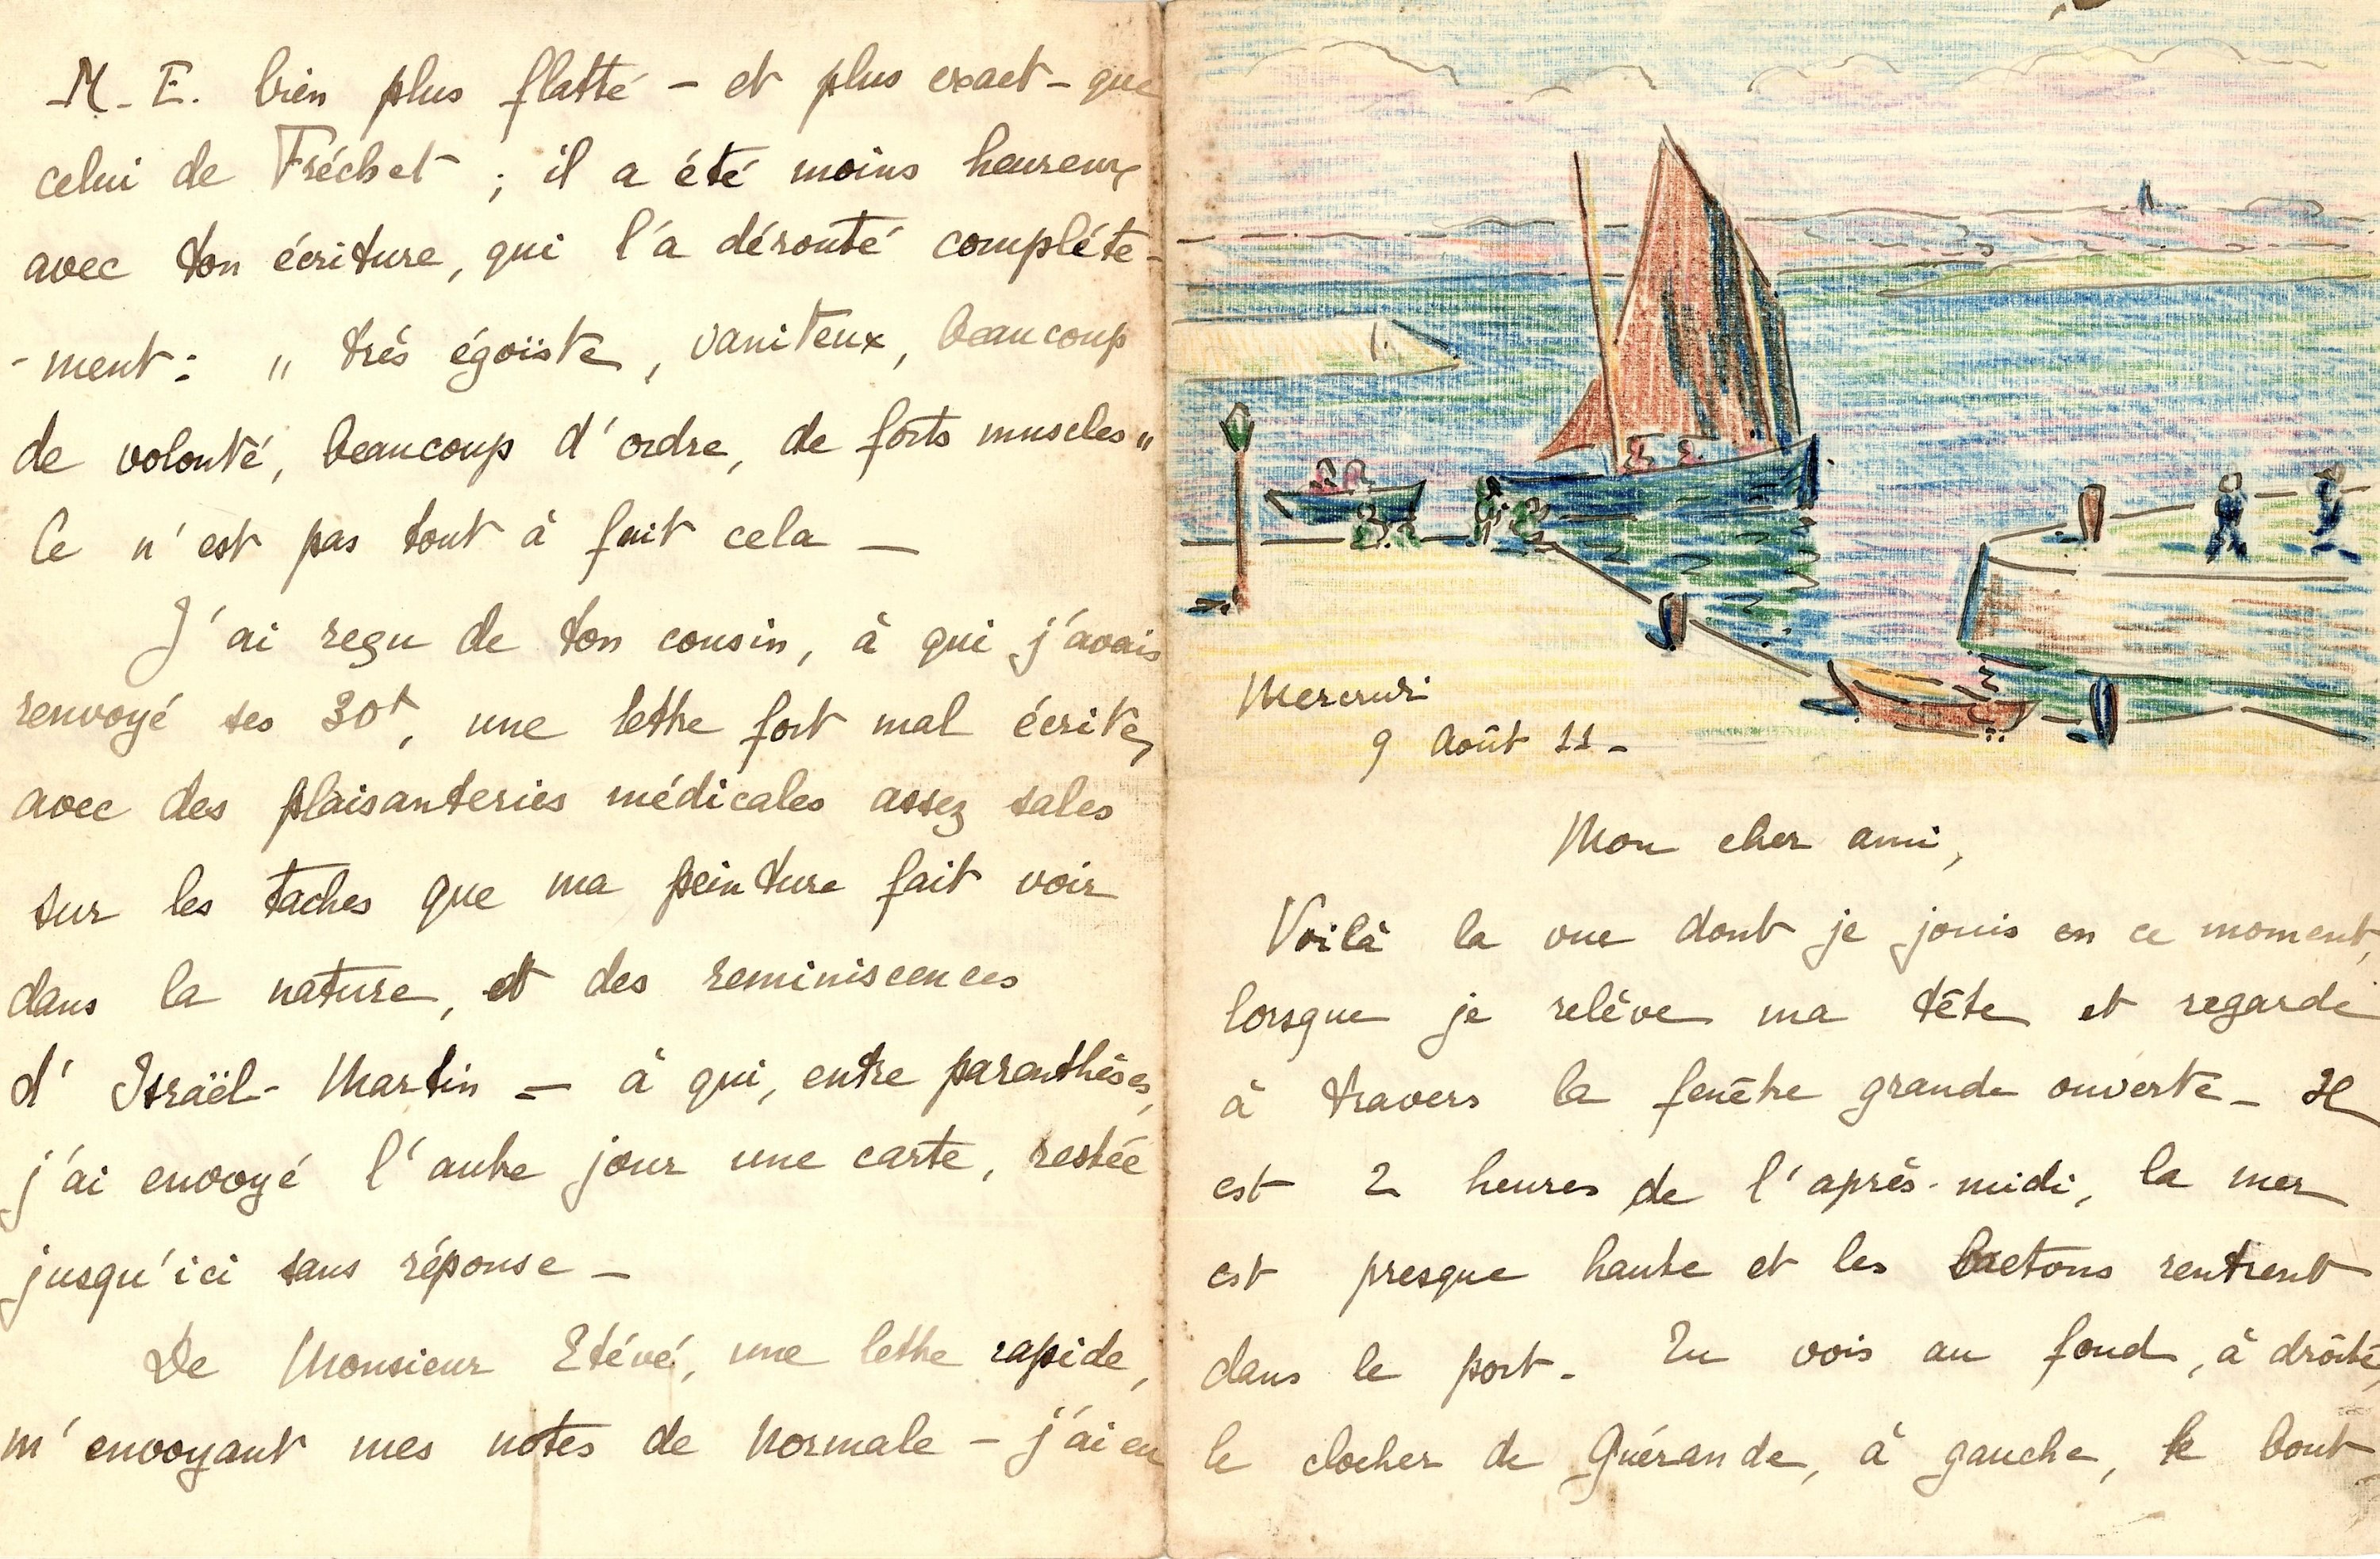 M. E. bien plus flatté – et plus exact – que
celui de Fréchet ; il a été moins heureux
avec ton écriture, qui l'a dérouté complète-
-ment : " très égoïste, vaniteux, beaucoup
de volonté, beaucoup d'ordre, de forts muscles "
Ce n'est pas tout à fait cela –
J'ai reçu de ton cousin, à qui j'avais
renvoyé ses 30f, une lettre fort mal écrite,
avec des plaisanteries médicales assez sales
sur les taches que ma peinture fait voir
dans la nature, et des reminiscences
d'Israël-Martin – à qui, entre parenthèses,
j'ai envoyé l'autre jour une carte, restée
jusqu'ici sans réponse –
De Monsieur Etévé, une lettre rapide,
m'envoyant mes notes de Normale – j'ai eu
Mercredi
9 Août 11 –
Mon cher ami,
Voilà la vue dont je jouis en ce moment,
lorsque je relève ma tête et regarde
à travers la fenêtre grande ouverte – Il
est 2 heures de l'après-midi, la mer
est presque haute et les bretons rentrent
dans le port – Tu vois au fond, à droite,
le clocher de Guérande, à gauche, le bout